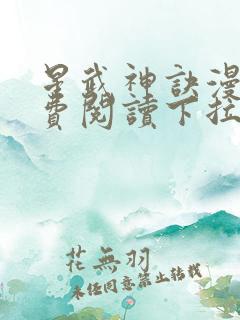 星武神訣漫
費閱讀下拉
花無羽
未經同意禁止转载